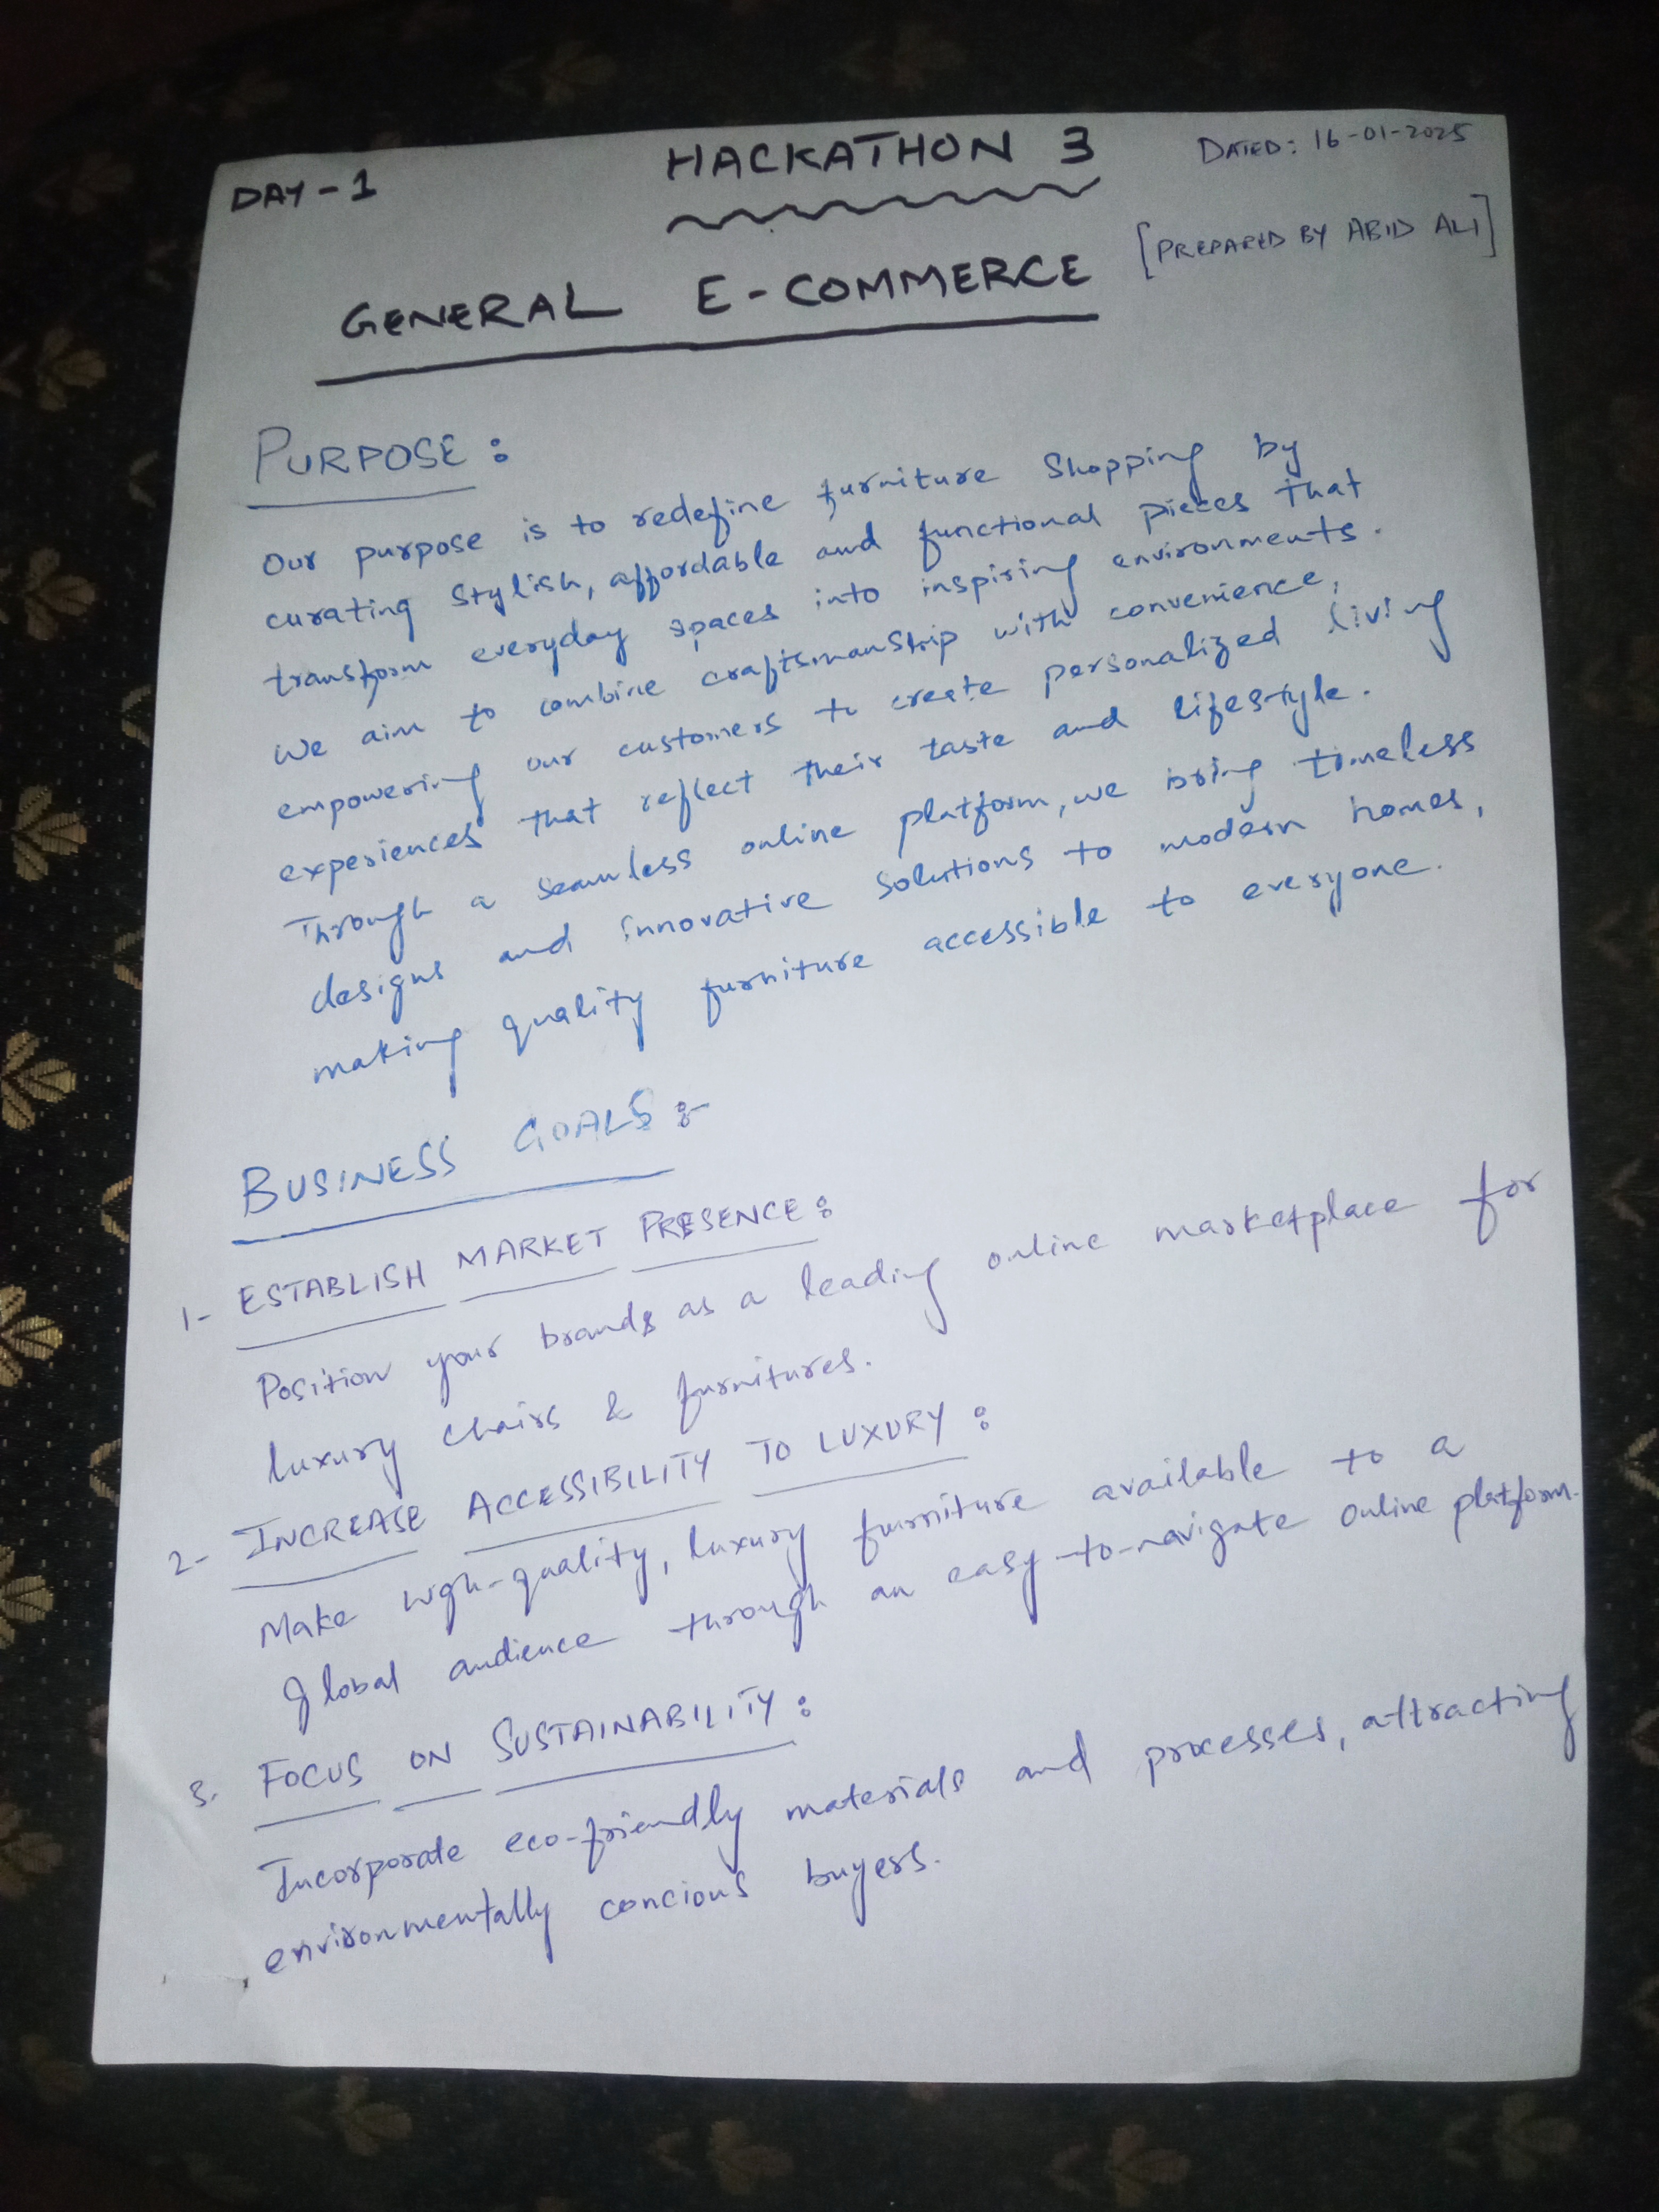 DAY-1
HACKATHON 3
DATED: 16-01-2025
[PREPARED BY ABID ALI]
GENERAL E-COMMERCE
PURPOSE:
Our purpose is to redefine furniture Shopping by
curating Stylish, affordable and functional pieces that
transform everyday spaces into inspiring environments.
We aim to combine craftsmanship with convenience,
empowering our customers to create personalized living
experiences that reflect their taste and lifestyle.
Through a seamless online platform, we bring timeless
designs and innovative solutions to modern homes,
making quality furniture accessible to everyone.
BUSINESS GOALS:-
1- ESTABLISH MARKET PRESENCE:
Position your brands as a leading online marketplace for
luxury chairs & furnitures.
2- INCREASE ACCESSIBILITY TO LUXURY:
Make high-quality, luxury furniture available to a
global audience through an easy-to-navigate online platform.
3. FOCUS ON SUSTAINABILITY:
Incorporate eco-friendly materials and processes, attracting
environmentally concious buyers.